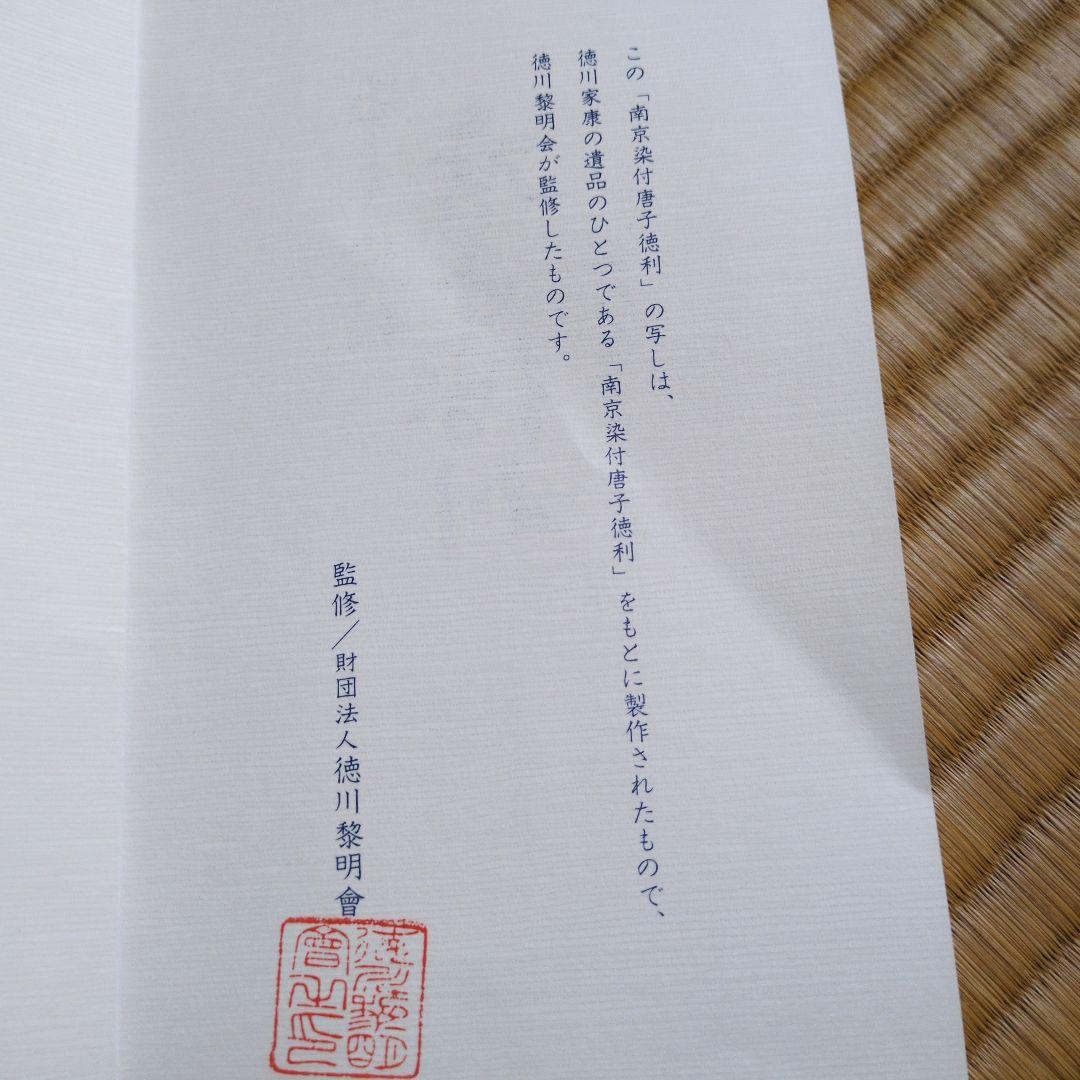 この「南京染付唐子徳利」の写しは、
徳川家康の遺品のひとつである「南京染付唐子徳利」をもとに製作されたもので、
徳川黎明会が監修したものです。
監修／財団法人徳川黎明會
徳川黎明
會之印